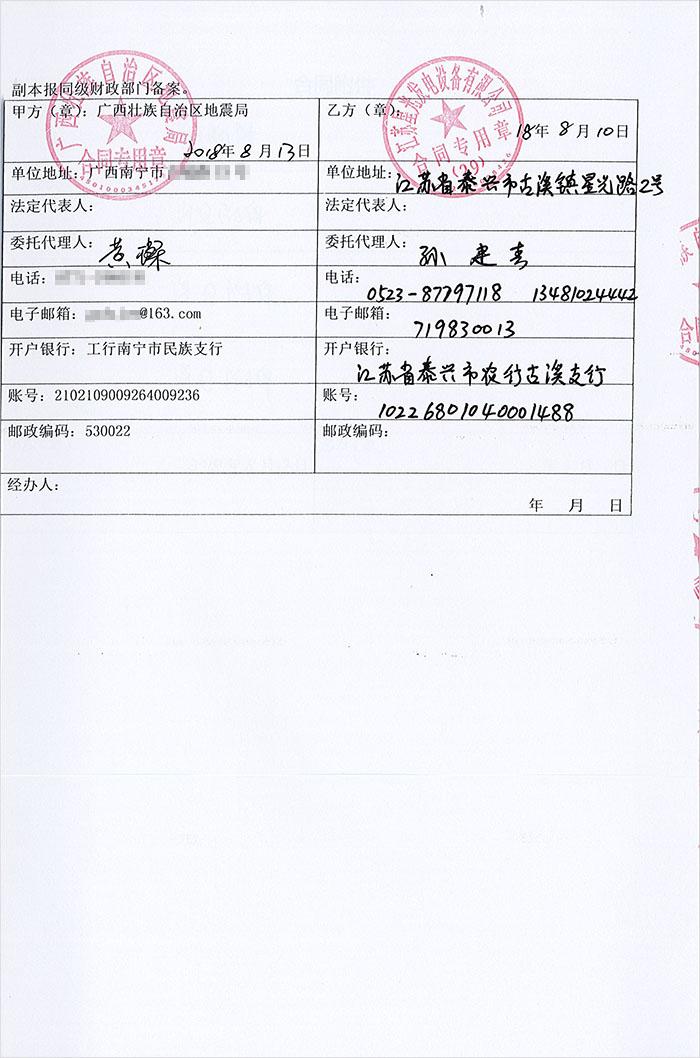 副本报同级财政部门备案。
甲方（章）：广西壮族自治区地震局
2018年8月13日
广西壮族自治区地震局
合同专用章
乙方（章）：
18年8月10日
江苏星光发电设备有限公司
合同专用章
(29)
单位地址：广西南宁市
单位地址：
江苏省泰兴市古溪镇星光路2号
法定代表人：
法定代表人：
委托代理人：
黄
委托代理人：
孙建春
电话：
电话：
0523-87797118 13481024442
电子邮箱：@163.com
电子邮箱：
719830013
开户银行：工行南宁市民族支行
开户银行：
江苏省泰兴市农行古溪支行
账号：2102109009264009236
账号：
10226801040001488
邮政编码：530022
邮政编码：
经办人：
年 月 日